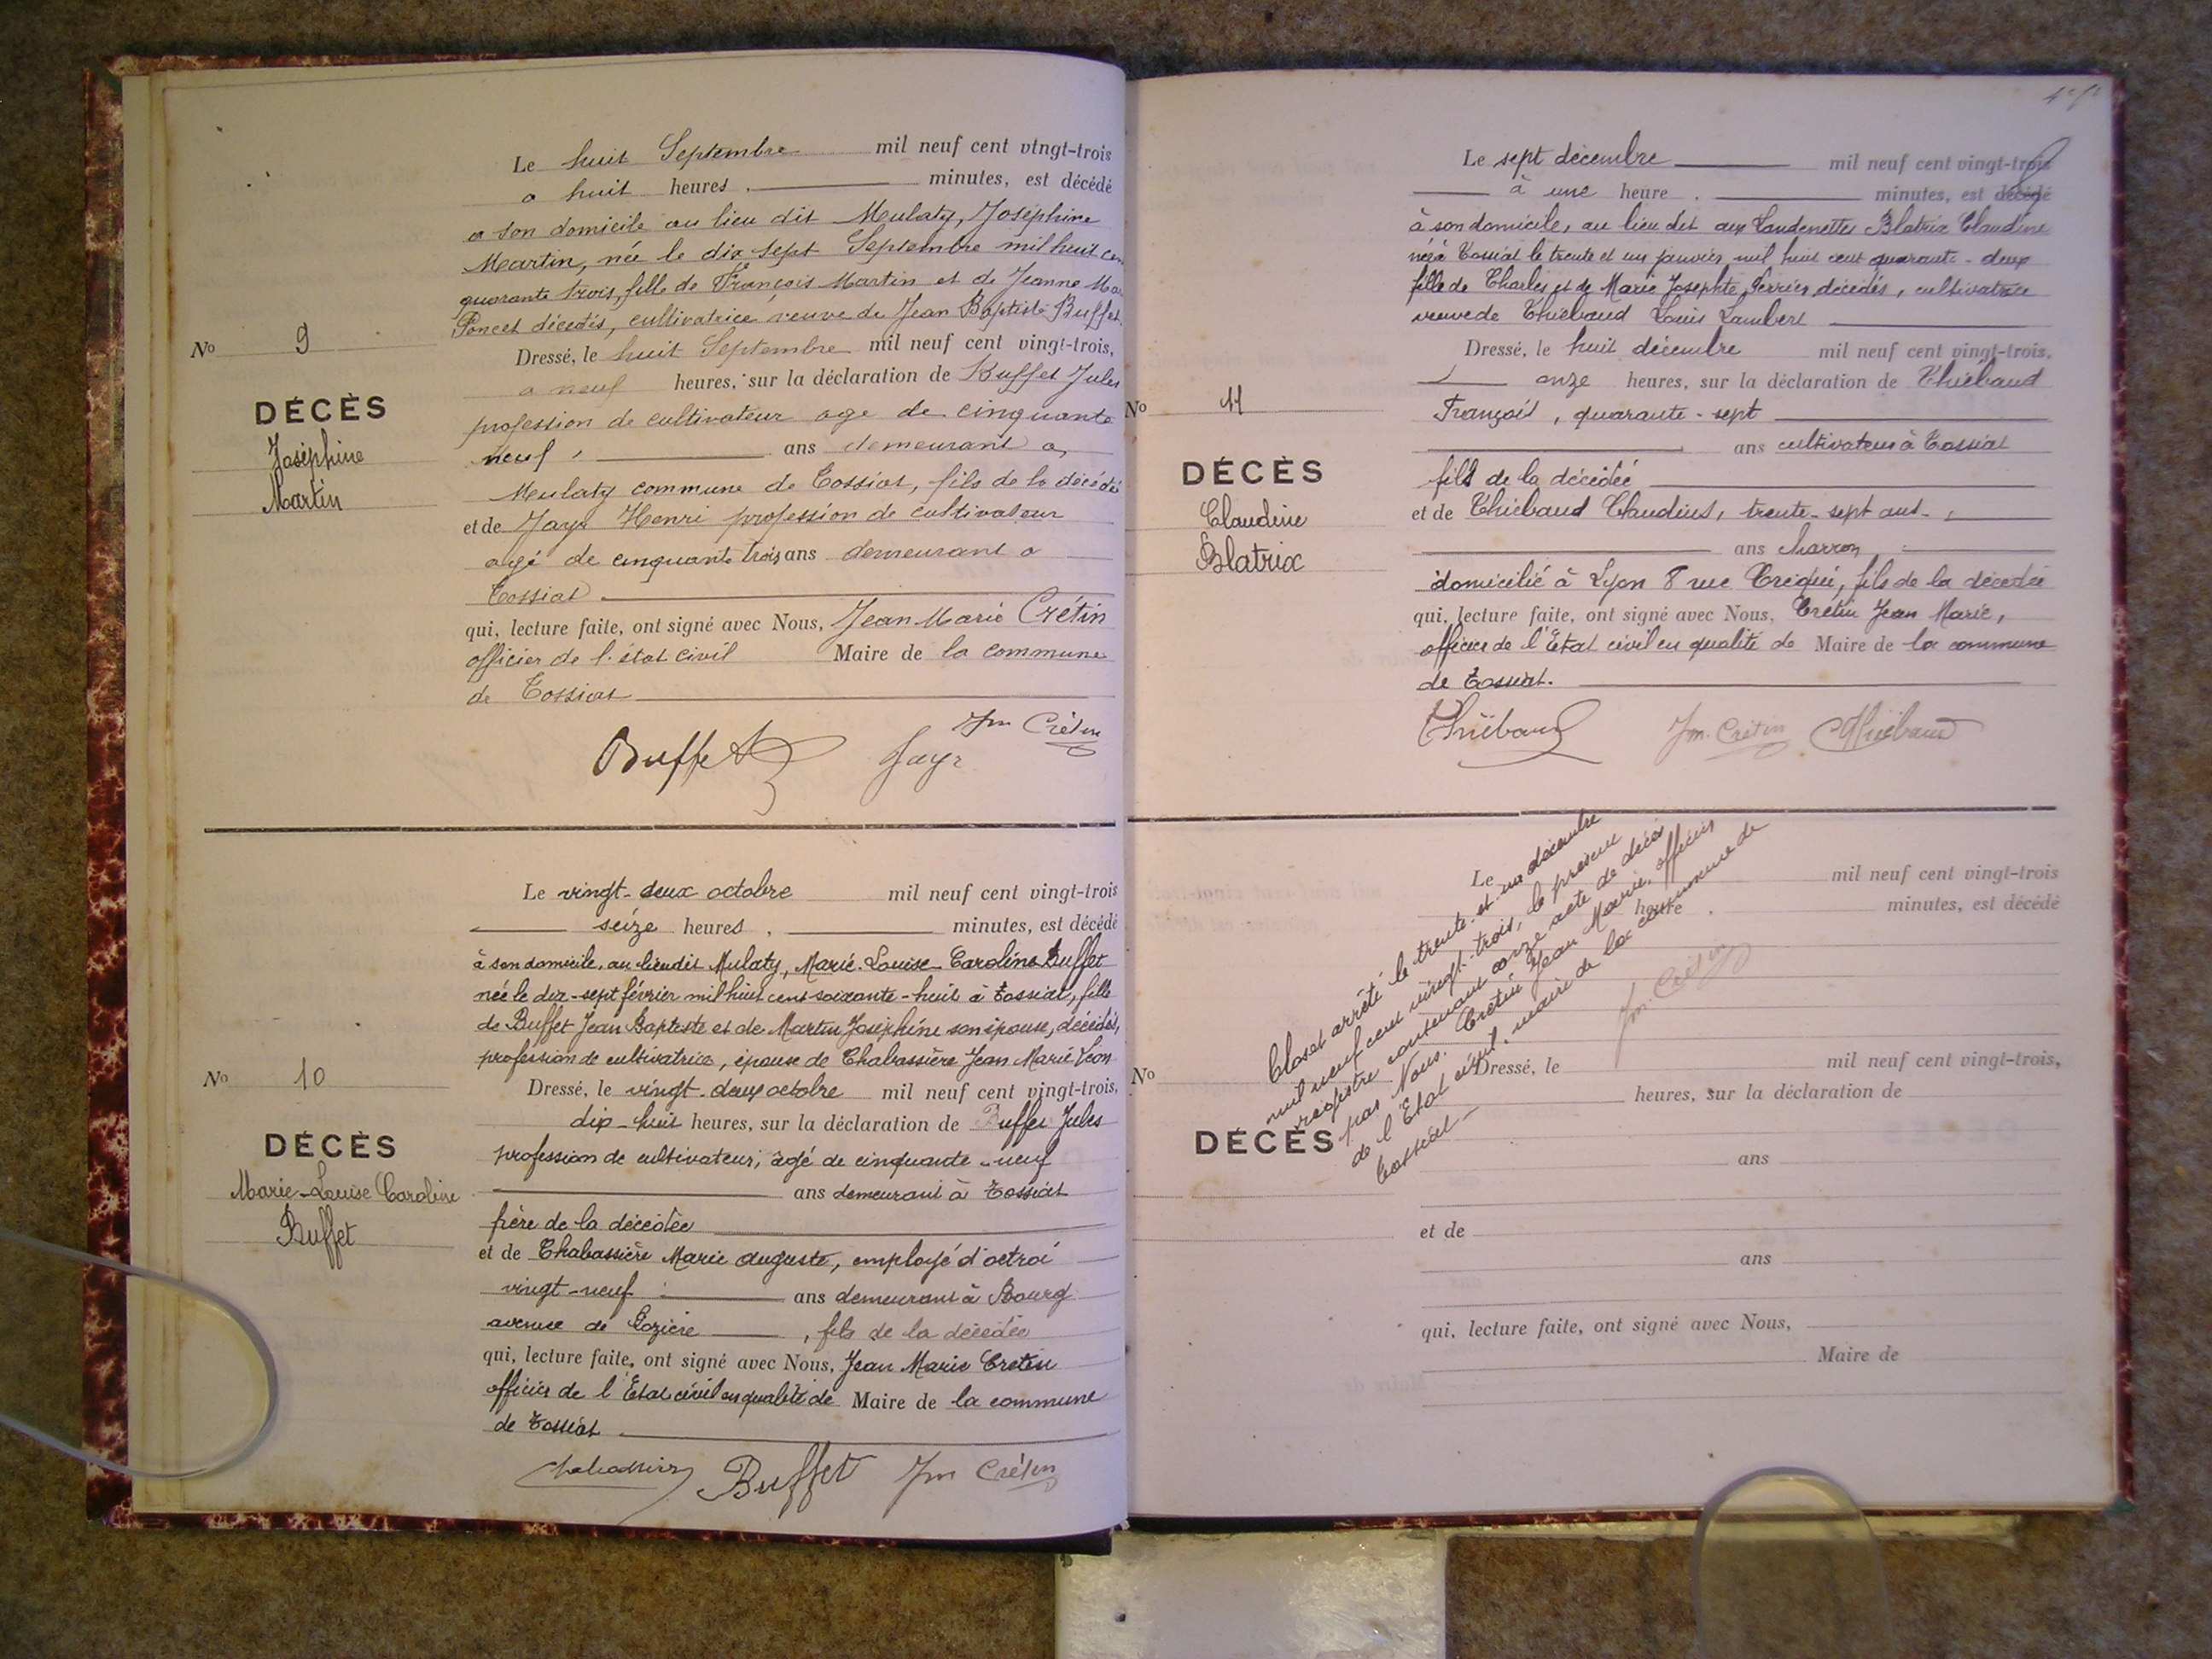 Le huit Septembre mil neuf cent vingt-trois
a huit heures, minutes, est décédé
a son domicile au lieu dit Meulaty, Joséphine
Martin, née le dix sept Septembre mil huit cen
quarante trois, fille de François Martin et de Jeanne Ma
Poncet décedés, cultivatrice veuve de Jean Baptiste Buffet.
No 9
Dressé, le huit Septembre mil neuf cent vingt-trois,
a neuf heures, sur la déclaration de Buffet Jules
DÉCÈS
Joséphine
Martin
profession de cultivateur age de cinquante
neuf, ans demeurant a,
Meulaty commune de Tossiat, fils de la décédé
et de Jayr Henri profession de cultivateur
agé de cinquante trois ans demeurant a
Tossiat
qui, lecture faite, ont signé avec Nous, Jean Marie Crétin
officier de l'état civil Maire de la commune
de Tossiat
Jm Crétin
Buffet Jayr
Le vingt-deux octobre mil neuf cent vingt-trois
seize heures, minutes, est décédé
à son domicile, au lieu dit Mulaty, Marie-Louise-Caroline Buffet
née le dix-sept février mil huit cent soixante-huit à Tossiat, fille
de Buffet Jean Baptiste et de Martin Joséphine son épouse, décédés,
profession de cultivatrice, épouse de Chabassière Jean Marie Léon
No 10
Dressé, le vingt-deux octobre mil neuf cent vingt-trois,
dix-huit heures, sur la déclaration de Buffet Jules
DÉCÈS
Marie-Louise Caroline
Buffet
profession de cultivateur, âgé de cinquante-neuf
ans demeurant à Tossiat
frère de la décédée
et de Chabassière Marie Auguste, employé d'octroi
vingt-neuf ans demeurant à Bourg
avenue de , fils de la décédée
qui, lecture faite, ont signé avec Nous, Jean Marie Cretin
officier de l'État civil en qualité de Maire de la commune
de Tossiat
Chabassière Buffet Jm Crétin
Le sept décembre mil neuf cent vingt-trois
à une heure, minutes, est décédé
à son domicile, au lieu dit aux Blatrix Claudine
née à Tossiat le trente et un janvier mil huit cent quarante-deux
fille de Charles et de Marie Josephte Perrier, décédés, cultivatrice
veuve de Thiébaud Louis Lambert
Dressé, le huit décembre mil neuf cent vingt-trois,
onze heures, sur la déclaration de Thiébaud
No 11
François, quarante-sept
ans cultivateur à Tossiat
DÉCÈS
Claudine
Blatrix
fils de la décédée
et de Thiébaud Claudius, trente-sept ans,
ans charron,
domicilié à Lyon 8 rue Créqui, fils de la décédée
qui, lecture faite, ont signé avec Nous, Crétin Jean Marie,
officier de l'État civil en qualité de Maire de la commune
de Tossiat.
Thiébaud Jm. Crétin Thiébaud
Le mil neuf cent vingt-trois
heure, minutes, est décédé
Clos et arrêté le trente et un décembre
mil neuf cent vingt-trois, le présent
registre contenant onze acte de décès
par Nous. Cretin Jean Marie, officier
de l'Etat civil, maire de la commune de
Tossiat
Jm. Crétin
No
Dressé, le mil neuf cent vingt-trois,
heures, sur la déclaration de
DÉCÈS
ans
et de
ans
qui, lecture faite, ont signé avec Nous,
Maire de